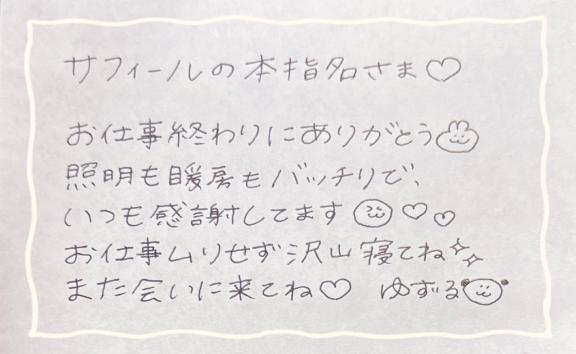 サフィールの本指名さま♡
お仕事終わりにありがとう
照明も暖房もバッチリで、
いつも感謝してます♡♡
お仕事ムリせず沢山寝てね
また会いに来てね♡ ゆずる